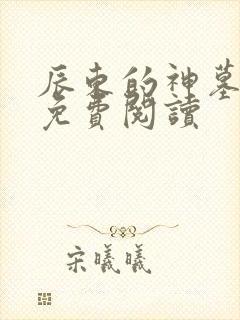 辰东的神墓
免費閱讀
宋曦曦